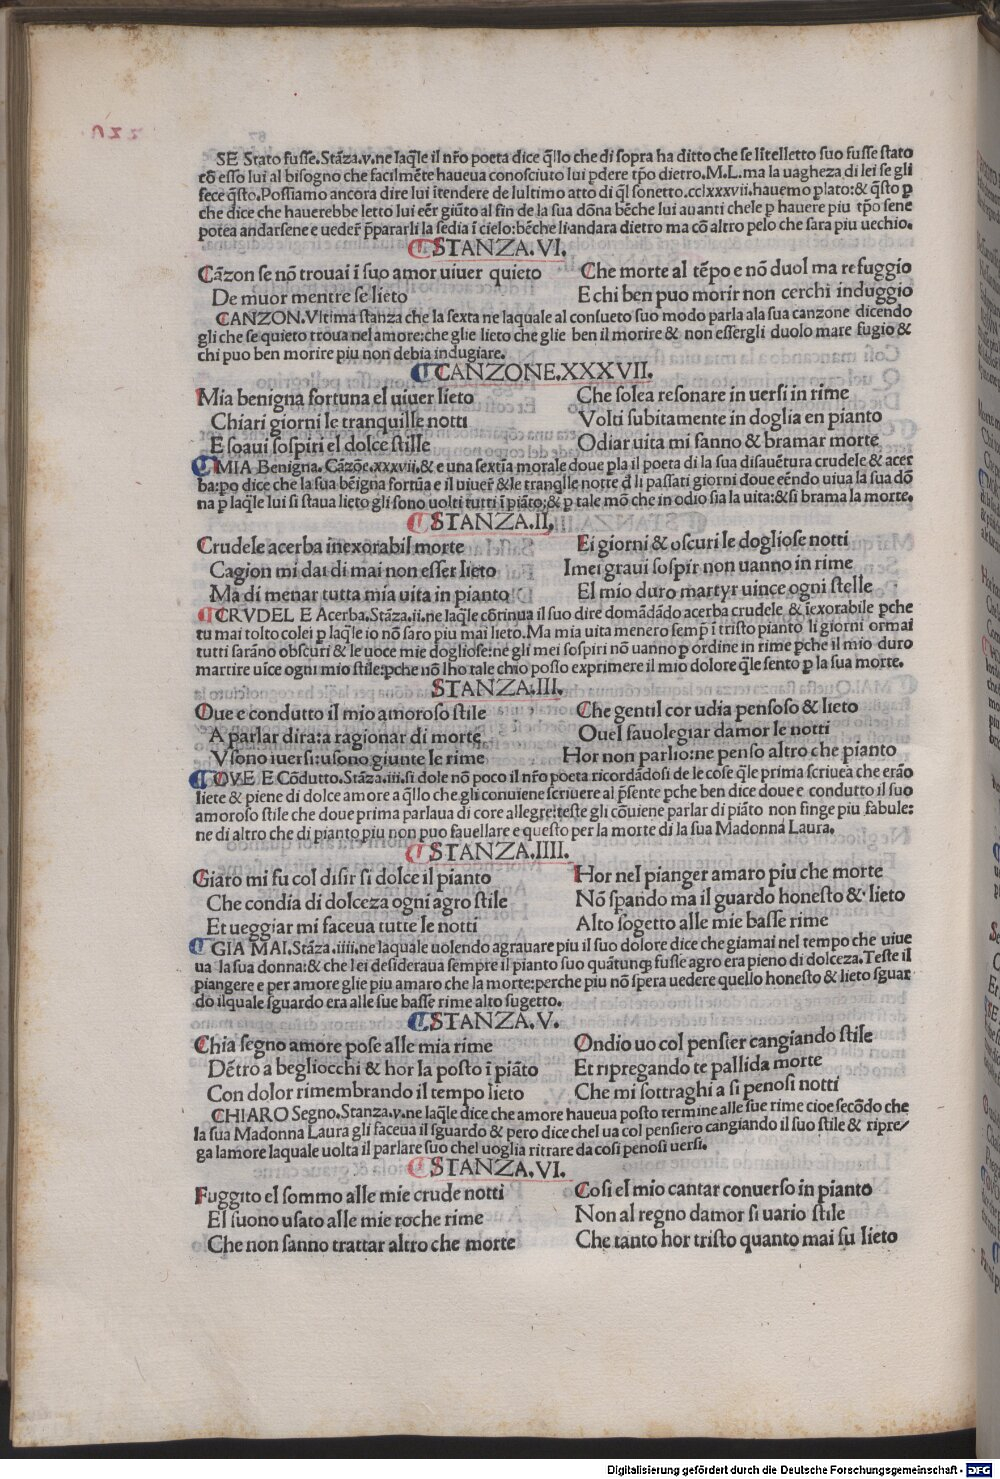 SE Stato fusse.Stāza.v.ne laq̄le il nr̄o poeta dice q̄llo che di sopra ha ditto che se litelletto suo fusse stato
cō esso lui al bisogno che facilmēte haueua conosciuto lui ꝑdere tp̄o dietro.M.L.ma la uagheza di lei se gli
fece q̄sto.Possiamo ancora dire lui ītendere de lultimo atto di q̄l sonetto.cclxxxvii.hauemo ꝑlato:& q̄sto ꝑ
che dice che hauerebbe letto lui eēr giūto al fin de la sua dōna bēche lui auanti chele ꝑ hauere piu tp̄o sene
potea andarsene e uedeȓ ꝑpararli la sedia ī cielo:bēche li andara dietro ma cō altro pelo che sara piu uechio.
STANZA.VI.
Cāzon se nō trouai ī suo amor uiuer quieto
De muor mentre se lieto
Che morte al tēpo e nō duol ma refuggio
E chi ben puo morir non cerchi induggio
CANZON.Vltima stanza che la sexta ne laquale al consueto suo modo parla ala sua canzone dicendo
gli che se quieto troua nel amore:che glie lieto che glie ben il morire & non essergli duolo mare fugio &
chi puo ben morire piu non debia indugiare.
CANZONE.XXXVII.
Mia benigna fortuna el uiuer lieto
Chiari giorni le tranquille notti
E soaui sospiri el dolce stille
Che solea resonare in uersi in rime
Volti subitamente in doglia en pianto
Odiar uita mi fanno & bramar morte
MIA Benigna.Cāzōe.xxxvii.& e una sextia morale doue ꝑla il poeta di la sua disauētura crudele & acer
ba:po dice che la sua bēigna fortūa e il uiueȓ &le tranq̄lle notte d̄ li passati giorni doue eēndo uiua la sua dō
na ꝑ laq̄le lui si staua lieto gli sono uolti tutti ī piāto:& ꝑ tale mō che in odio sia la uita:& si brama la morte.
STANZA.II.
Crudele acerba inexorabil morte
Cagion mi dai di mai non esser lieto
Ma di menar tutta mia uita in pianto
Ei giorni & oscuri le dogliose notti
Imei graui sospir non uanno in rime
El mio duro martyr uince ogni stelle
CRVDEL E Acerba.Stāza.ii.ne laq̄le cōtinua il suo dire domādādo acerba crudele & īexorabile ꝑche
tu mai tolto colei ꝑ laq̄le io nō saro piu mai lieto.Ma mia uita menero semꝑ ī tristo pianto li giorni ormai
tutti sarāno obscuri & le uoce mie dogliose:ne gli mei sospiri nō uanno ꝑ ordine in rime ꝑche il mio duro
martire uīce ogni mio stile:ꝑche nō lho tale chio posso exprimere il mio dolore q̄le sento ꝑ la sua morte.
STANZA.III.
Oue e condutto il mio amoroso stile
A parlar dira:a ragionar di morte
Vsono iuersi:usono giunte le rime
Che gentil cor udia pensoso & lieto
Ouel fauolegiar damor le notti
Hor non parlio:ne penso altro che pianto
OVE E Cōdutto.Stāza.iii.si dole nō poco il nr̄o poeta ricordādosi de le cose q̄le prima scriuea che erāo
liete & piene di dolce amore a q̄llo che.gli conuiene scriuere al p̄sente ꝑche ben dice doue e condutto il suo
amoroso stile che doue prima parlaua di core allegre:teste gli cōuiene parlar di piāto non finge piu fabule:
ne di altro che di pianto piu non puo fauellare e questo per la morte di la sua Madonna Laura.
STANZA.IIII.
Giaro mi fu col disir si dolce il pianto
Che condia di dolceza ogni agro stile
Et ueggiar mi faceua tutte le notti
Hor nel pianger amaro piu che morte
Nō spando ma il guardo honesto & lieto
Alto sogetto alle mie basse rime
GIA MAI.Stāza.iiii.ne laquale uolendo agrauare piu il suo dolore dice che giamai nel tempo che uiue
ua la sua donna:& che lei desideraua sempre il pianto suo quātunqȝ fusse agro era pieno di dolceza.Teste il
piangere e per amore glie piu amaro che la morte:perche piu nō spera uedere quello honesto & lieto sguar
do ilquale sguardo era alle sue basse rime alto sugetto.
STANZA.V.
Chia segno amore pose alle mia rime
Dētro a begliocchi & hor la posto ī piāto
Con dolor rimembrando il tempo lieto
Ondio uo col pensier cangiando stile
Et ripregando te pallida morte
Che mi sottraghi a si penosi notti
CHIARO Segno.Stanza.v.ne laq̄le dice che amore haueua posto termine alle sue rime cioe secōdo che
la sua Madonna Laura gli faceua il sguardo & pero dice chel ua col pensiero cangiando il suo stile & ripre/
ga lamore laquale uolta il parlare suo chel uoglia ritrare da cosi penosi uersi.
STANZA.VI.
Fuggito el sommo alle mie crude notti
El suono usato alle mie roche rime
Che non sanno trattar altro che morte
Cosi el mio cantar conuerso in pianto
Non al regno damor si uario stile
Che tanto hor tristo quanto mai fu lieto
Digitalisierung gefördert durch die Deutsche Forschungsgemeinschaft - DFG